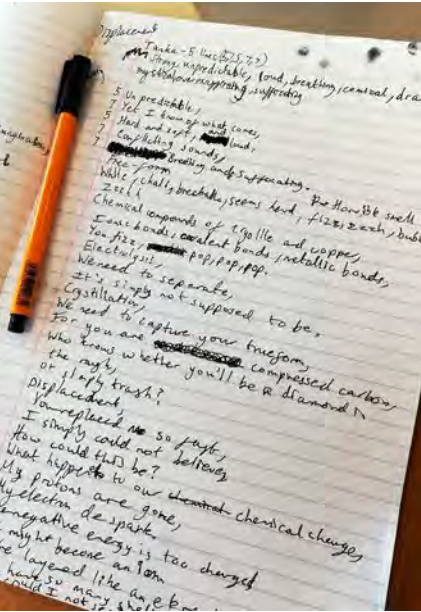 Displacement
Tanka - 5 lines (5,7,5,7,7)
Strong, unpredictable, loud, breathing, comical, dra
overlapping, suffocating
5 Unpredictable,
7 Yet I know of what comes,
5 Hard and soft, loud,
7 Conflicting sounds,
7 Breathing and suffocating.
Free form Horrible smell
White chalk, breakable, seems hard, fizz, zazh, bubb
Chemical compounds of and copper,
Ionic bonds, covalent bonds, metallic bonds,
You fizz, pop, pop, pop.
Electrolysis,
We need to separate,
It's simply not supposed to be.
Crystillation,
We need to capture your trueform,
For you are compressed carbon,
Who knows whether you'll be a diamond in
the rough,
or simply trash?
Displacement,
You replaced me so fast,
I simply could not believe,
How could this be?
What happens to our chemical change,
My protons are gone,
My electron de-spark.
negative energy is too charged
might become an ion
layered like an
have so many shells
could I not see